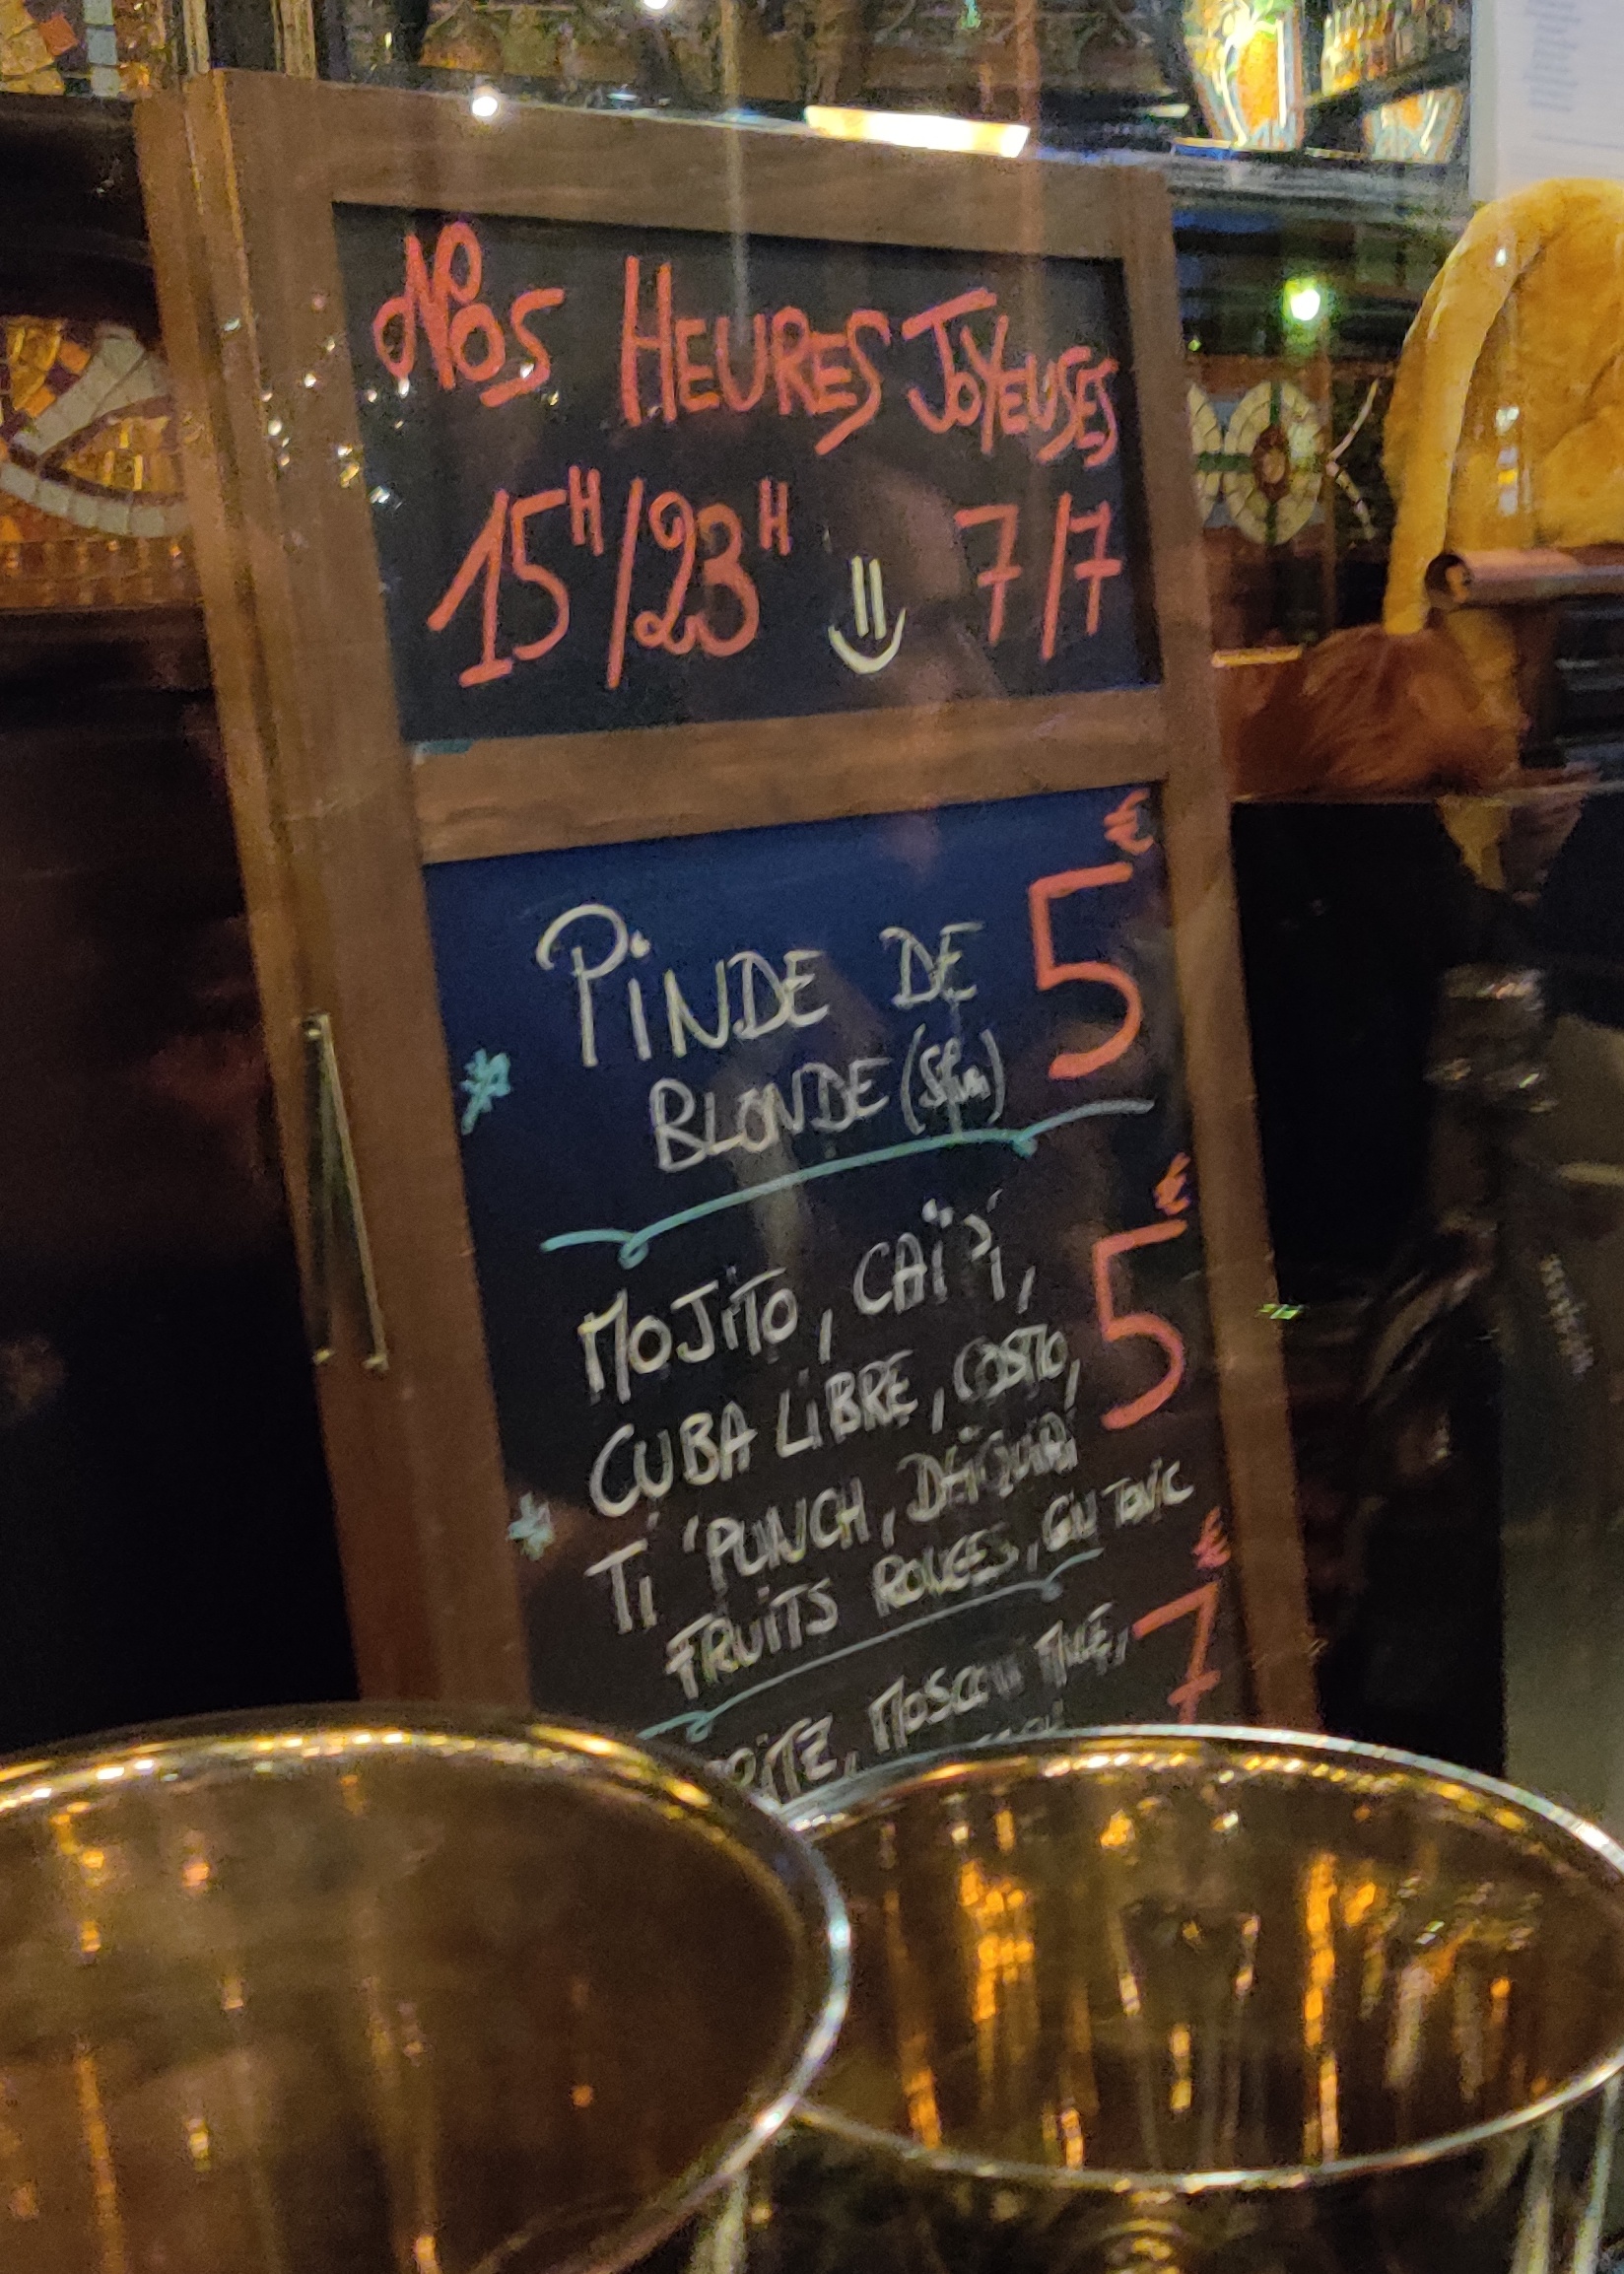 Nos Heures Joyeuses
15H/23H 7/7
€
PiNDE DE 5
BLONDE
€
MOJiTO, CAÏPi, 5
CUBA LiBRE, COSMO,
Ti 'PUNCH, DAÏQUIRI
FRUiTS ROUGES, GIN TONIC
€
MOSCOW MULE, 7